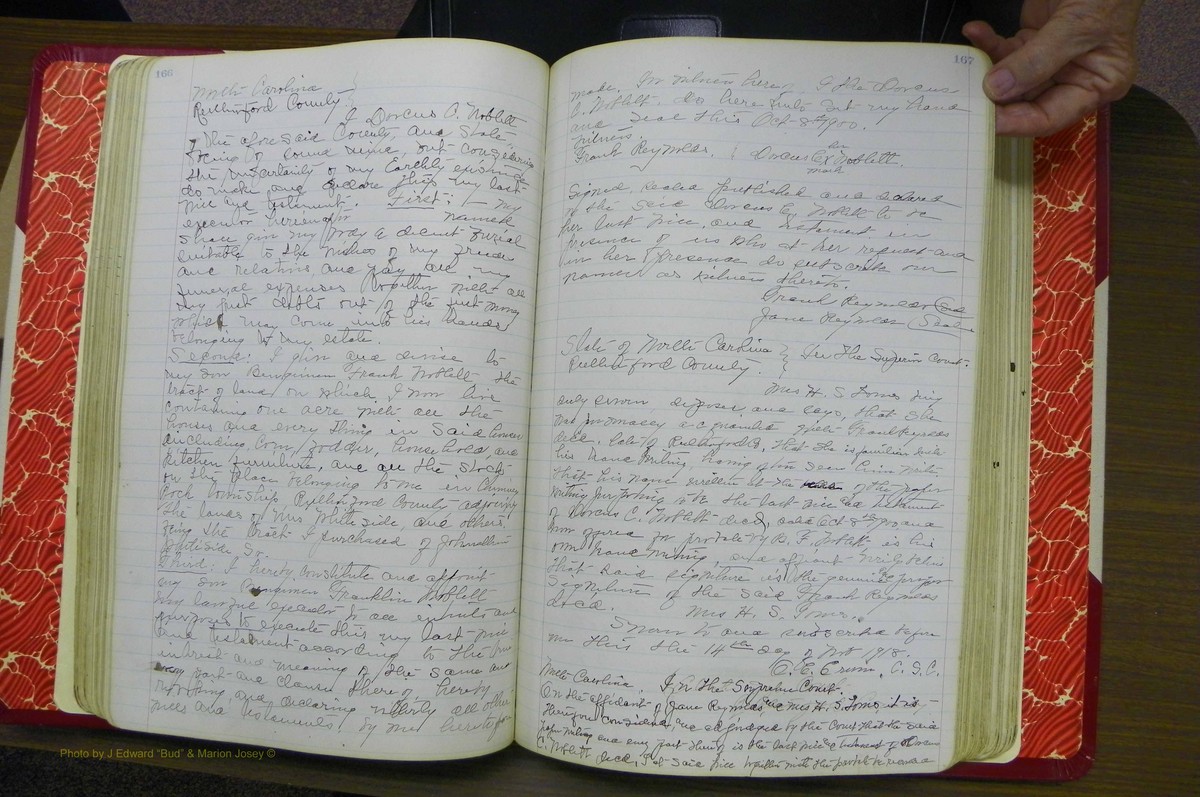 166
North Carolina
Rutherford County
I Dorcus C. Noblett
of the afore said County, and State,
being of sound mind, but considering
the uncertainty of my Earthly existence
do make and declare this my last
will and testament. First: - my
executor hereinafter named
shall give my body a decent burial
suitable to the wishes of my friends
and relations, and pay all my
funeral expenses together with all
my just debts out of the first money
which may come into his hands
belonging to my estate.
Second: I give and devise to
my son Benjiman Frank Noblett the
tract of land on which I now live
containing one acre with all the
houses and every thing in said houses
including Corn, fodder, household, and
Kitchen furniture, and all the stock
on the place belonging to me in Chimney
Rock township Rutherford County adjoining
the lands of Mrs Whiteside, and others.
being the tract I purchased of
Whiteside Sr.
Third: I hereby constitute and appoint
my son Benjiman Franklin Noblett
my lawful executor to all intents and
purposes to execute this my last will
and testament according to the true
intent and meaning of the same and
every part and clause there of, hereby
revoking and declaring utterly all other
wills and testaments by me heretofore
167
made. In witness hereof I the Dorcus
C. Noblett do here unto set my hand
and seal this Oct 8th 1900.
witness.
Frank Reynolds. Dorcus C. her x mark Noblett.
Signed, sealed published and declared
by the said Dorcus C. Noblett to be
her last will and testament in
presence of us who at her request and
in her presence do subscribe our
names as witness thereto.
Frank Reynolds (Seal
Jane Reynolds (Seal
State of North Carolina } In The Superior Court.
Rutherford County.
Mrs H. S. Toms being
duly sworn, deposes and says, that she
was acquainted with Frank Reynolds
decd. late of Rutherford Co, that she is familiar with
his hand writing, having often seen him write
that his name written at the of the paper
writing purporting to be the last will and testament
of Dorcus C. Noblett decd, dated Oct 8th 1900 and
now offered for probate by B. F. Noblett is his
own hand writing, and affiant
that said signature is the genuine & proper
signature of the said Frank Reynolds
decd. Mrs H. S. Toms.
Sworn to and subscribed before
me this the 14th day of Nov 1918.
C. C. S. C.
North Carolina. In The Supreme Court.
On the affidavit of Jane Reynolds, and Mrs H. S. Toms it is
therefore considered, and adjudged by the Court that the said
paper writing and every part thereof is the last will & testament of Dorcus
C. Noblett decd, & that said will together with the probate be record
Photo by J Edward "Bud" & Marion Josey ©